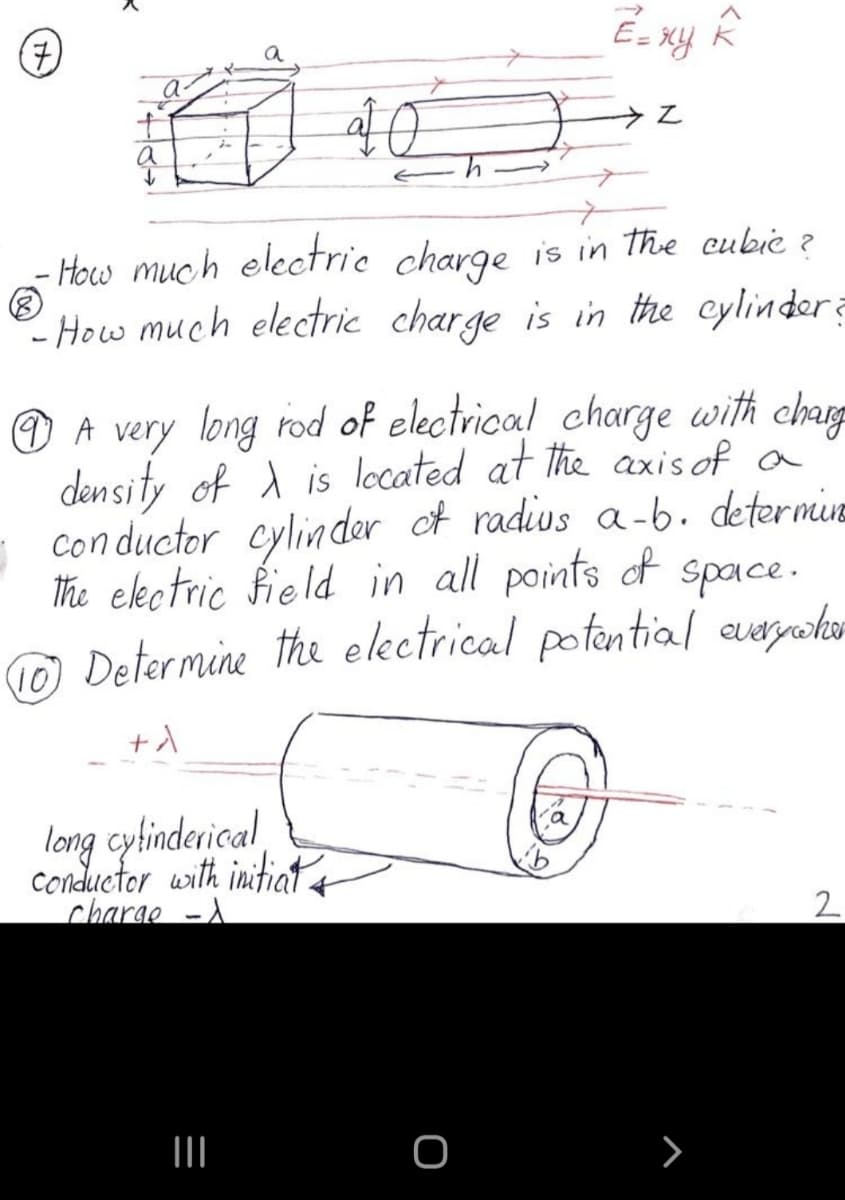 7
E = xy k̂
a
a
a
a
h
Z
- How much electric charge is in the cubic?
8
- How much electric charge is in the cylinder?
9 A very long rod of electrical charge with charg
density of λ is located at the axis of a
conductor cylinder of radius a-b. determine
the electric field in all points of space.
10 Determine the electrical potential everywher
+λ
a
b
long cylinderical
conductor with initial
charge -λ
2